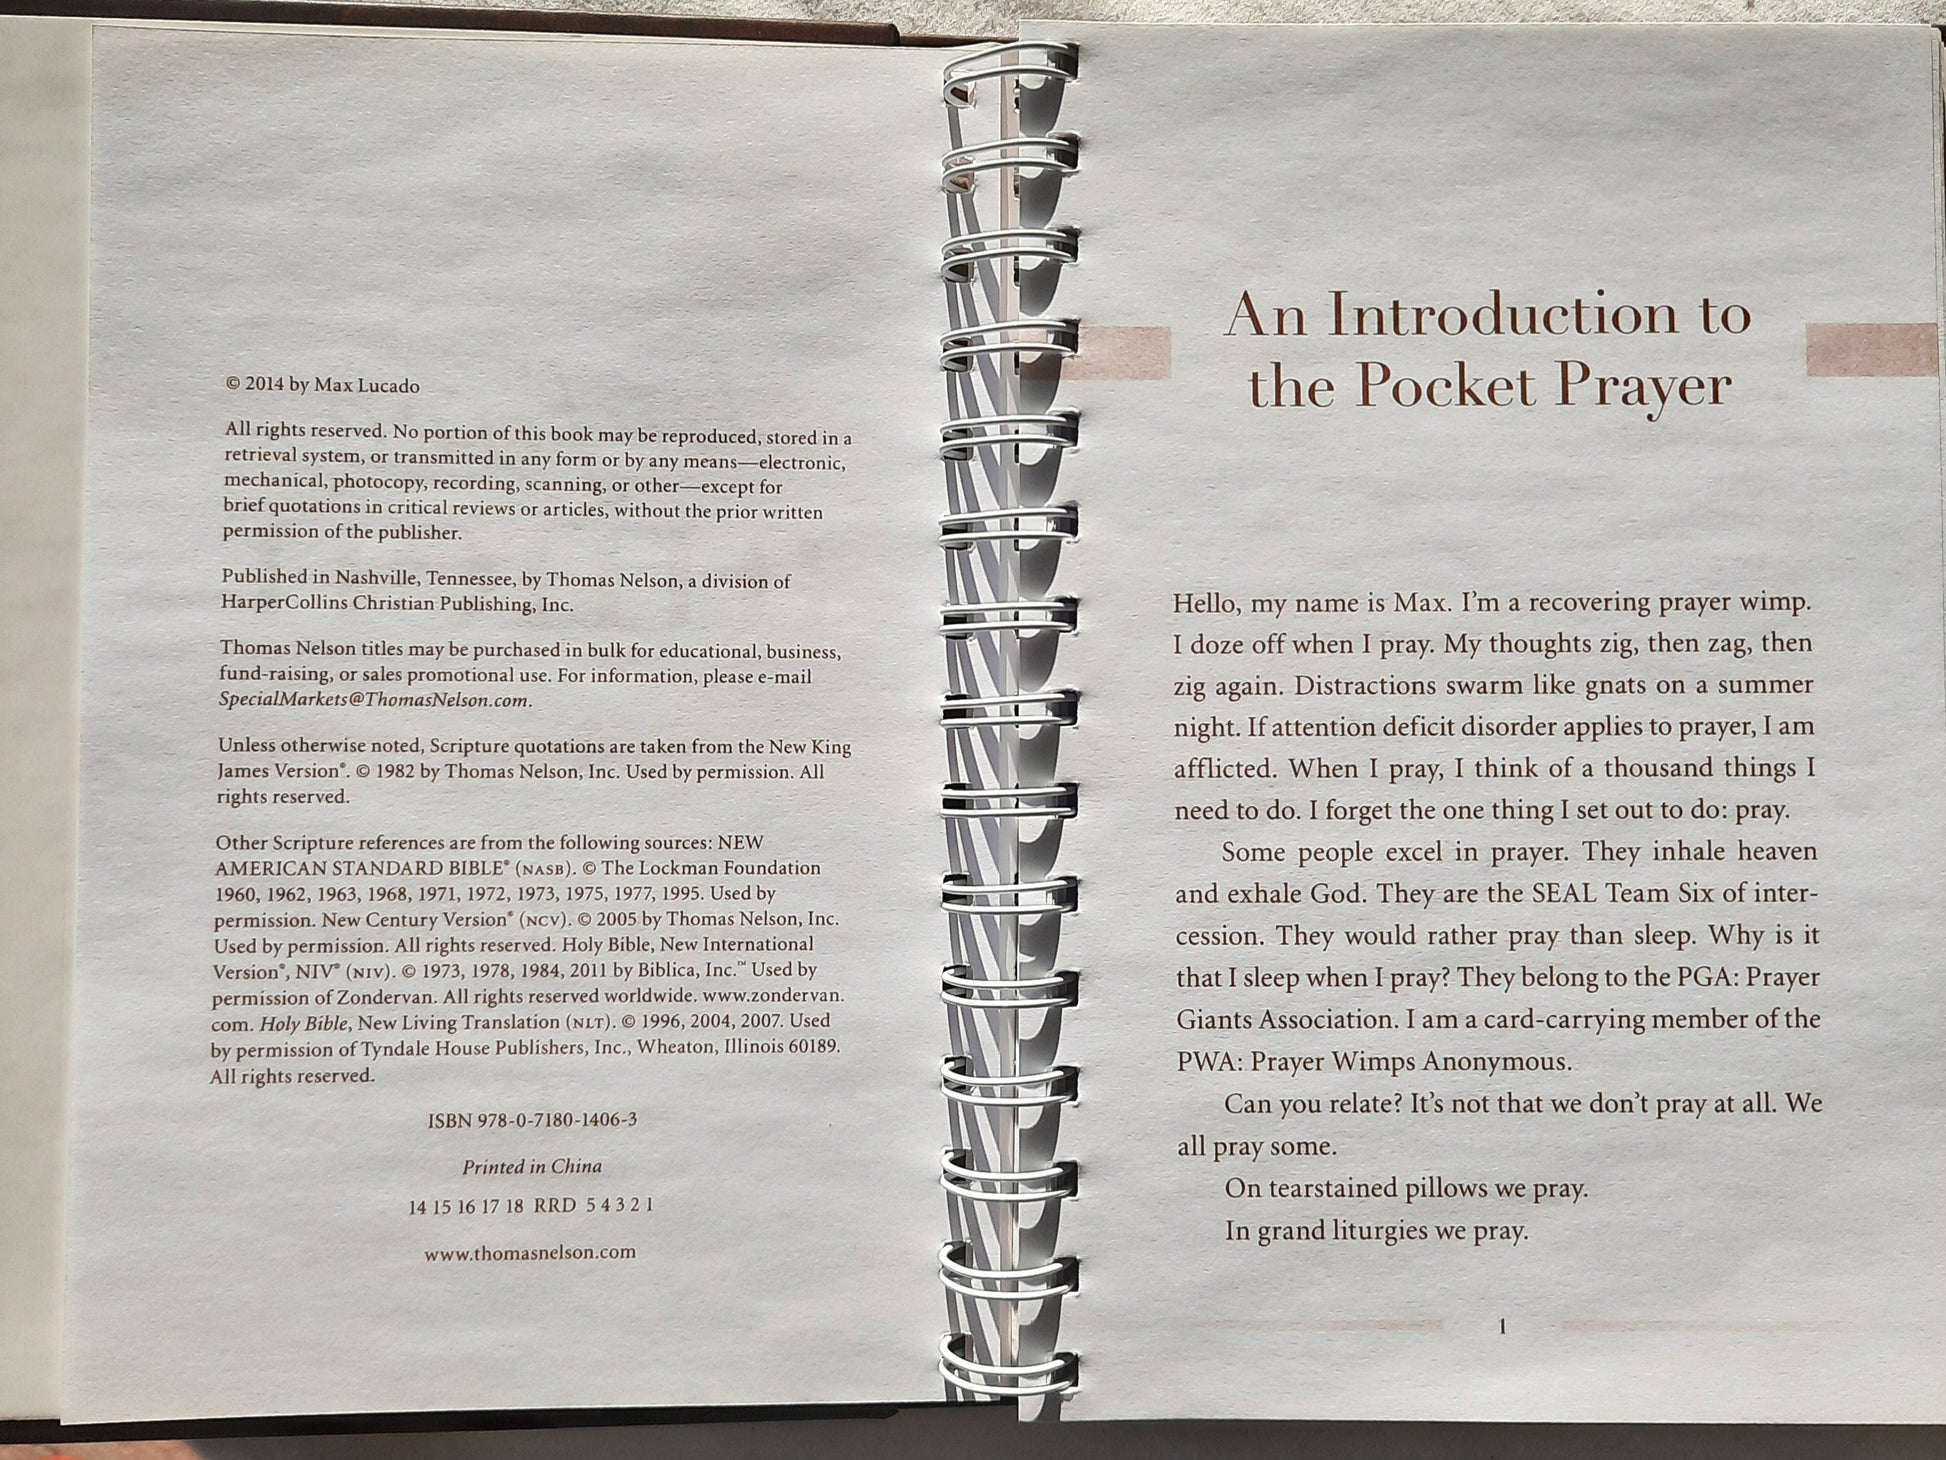 © 2014 by Max Lucado
All rights reserved. No portion of this book may be reproduced, stored in a
retrieval system, or transmitted in any form or by any means—electronic,
mechanical, photocopy, recording, scanning, or other—except for
brief quotations in critical reviews or articles, without the prior written
permission of the publisher.
Published in Nashville, Tennessee, by Thomas Nelson, a division of
HarperCollins Christian Publishing, Inc.
Thomas Nelson titles may be purchased in bulk for educational, business,
fund-raising, or sales promotional use. For information, please e-mail
SpecialMarkets@ThomasNelson.com.
Unless otherwise noted, Scripture quotations are taken from the New King
James Version®. © 1982 by Thomas Nelson, Inc. Used by permission. All
rights reserved.
Other Scripture references are from the following sources: NEW
AMERICAN STANDARD BIBLE® (NASB). © The Lockman Foundation
1960, 1962, 1963, 1968, 1971, 1972, 1973, 1975, 1977, 1995. Used by
permission. New Century Version® (NCV). © 2005 by Thomas Nelson, Inc.
Used by permission. All rights reserved. Holy Bible, New International
Version®, NIV® (NIV). © 1973, 1978, 1984, 2011 by Biblica, Inc.™ Used by
permission of Zondervan. All rights reserved worldwide. www.zondervan.
com. Holy Bible, New Living Translation (NLT). © 1996, 2004, 2007. Used
by permission of Tyndale House Publishers, Inc., Wheaton, Illinois 60189.
All rights reserved.
ISBN 978-0-7180-1406-3
Printed in China
14 15 16 17 18 RRD 5 4 3 2 1
www.thomasnelson.com
An Introduction to
the Pocket Prayer
Hello, my name is Max. I’m a recovering prayer wimp.
I doze off when I pray. My thoughts zig, then zag, then
zig again. Distractions swarm like gnats on a summer
night. If attention deficit disorder applies to prayer, I am
afflicted. When I pray, I think of a thousand things I
need to do. I forget the one thing I set out to do: pray.
Some people excel in prayer. They inhale heaven
and exhale God. They are the SEAL Team Six of inter-
cession. They would rather pray than sleep. Why is it
that I sleep when I pray? They belong to the PGA: Prayer
Giants Association. I am a card-carrying member of the
PWA: Prayer Wimps Anonymous.
Can you relate? It’s not that we don’t pray at all. We
all pray some.
On tearstained pillows we pray.
In grand liturgies we pray.
1